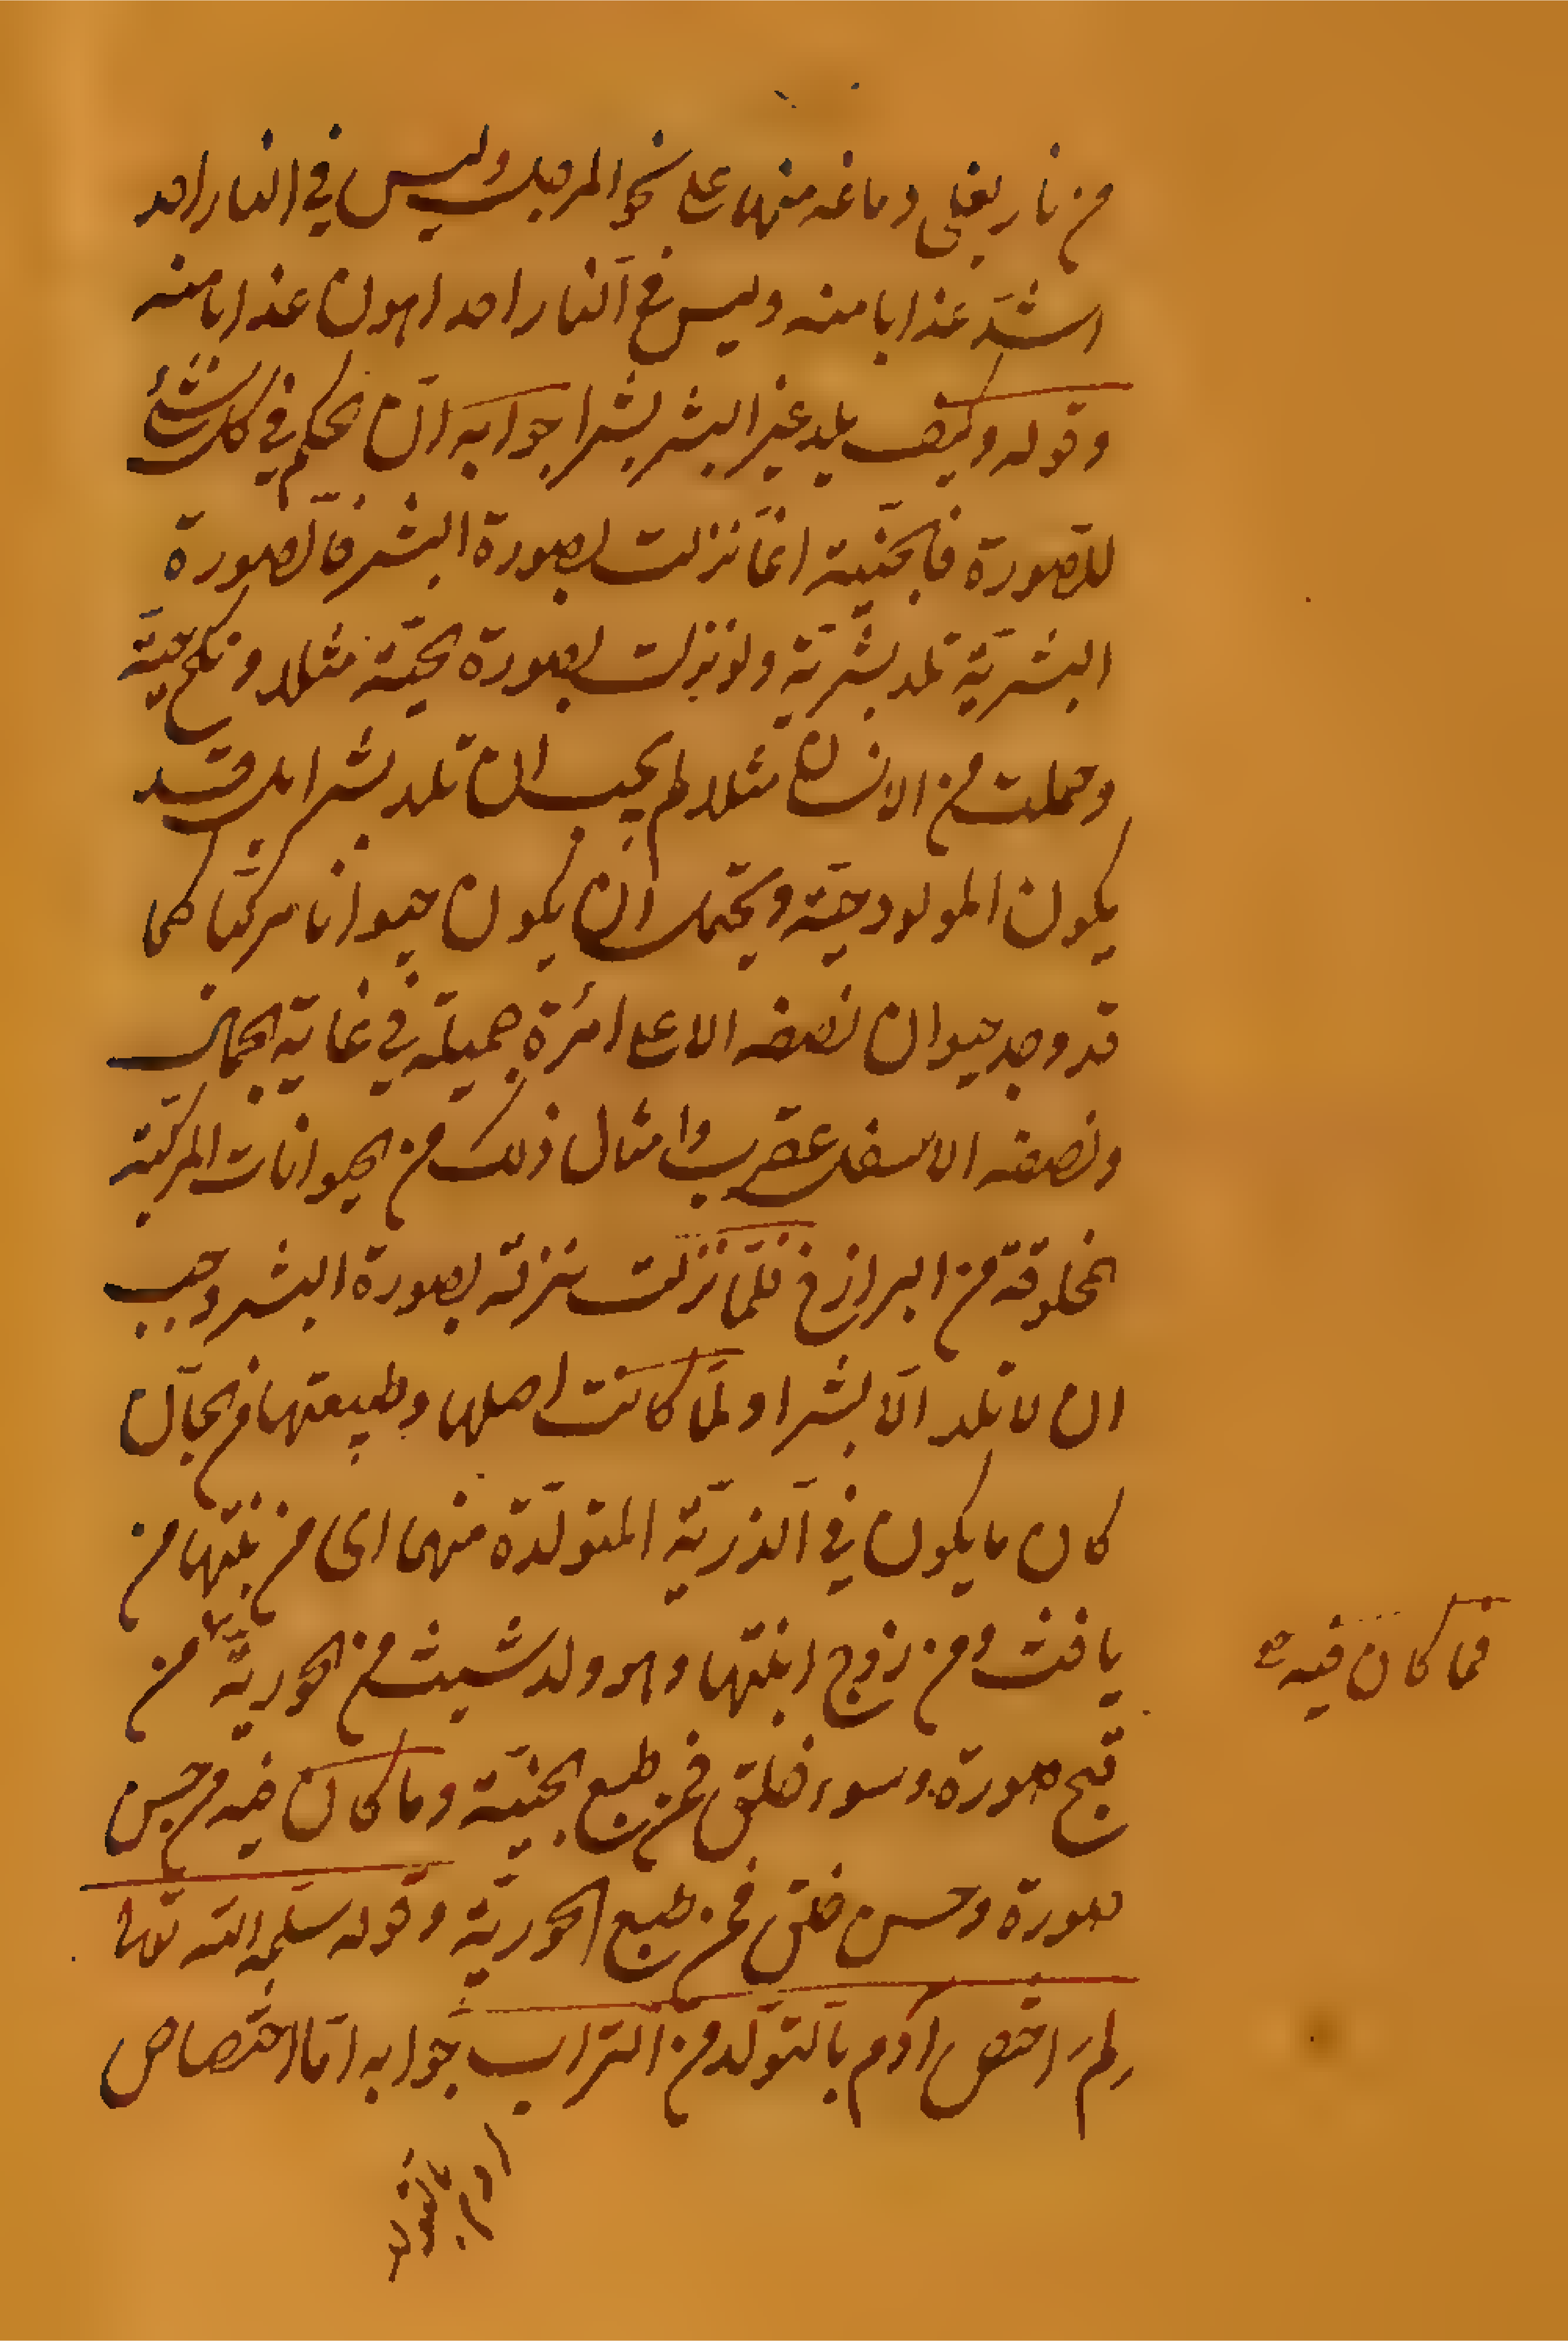 من نار يغلى دماغه منها على نحو المرجل وليس فى النار احد
اشدّ عذابا منه وليس فى النار احد اهون عذابا منه
وقوله وكيف يلد غير البشر بشرا جوابه انّ الحكم فى كل شئ
للصورة فالجنّية انّما نزلت بصورة البشر فالصّورة
البشريّة تلد بشريّة ولو نزلت بصورة الحيّة مثلا ونكح حيّة
وحملت من الانسان مثلا لم يجب ان تلد بشرا بل قد
يكون المولود حيّة ويحتمل ان يكون حيوانا مركّبا كما
قد وجد حيوان نصفه الاعلى امرءة جميلة فى غاية الجمال
ونصفه الاسفل عقرب وامثال ذلك من الحيوانات المركّبة
المخلوقة من البرازخ فلمّا نزلت نزلة بصورة البشر وجب
ان لا تلد الّا بشرا ولمّا كانت اصلها وطبيعتها من الجآن
كان ما يكون فى الذّريّة المتولّدة منهما اى من بنتها من
يافث ومن زوج ابنتها وهو ولد شيث من الحوريّة من
فما كان فيه صح
قبح صورة وسوء خلق فمن طبع الجنّية وما كان فيه من حسن
صورة وحسن خلق فمن طبع الحوريّة وقوله سلمه الله تعالى
لم اختص آدم بالتّولّد من التّراب جوابه امّا اختصاص
ادم بالتولد